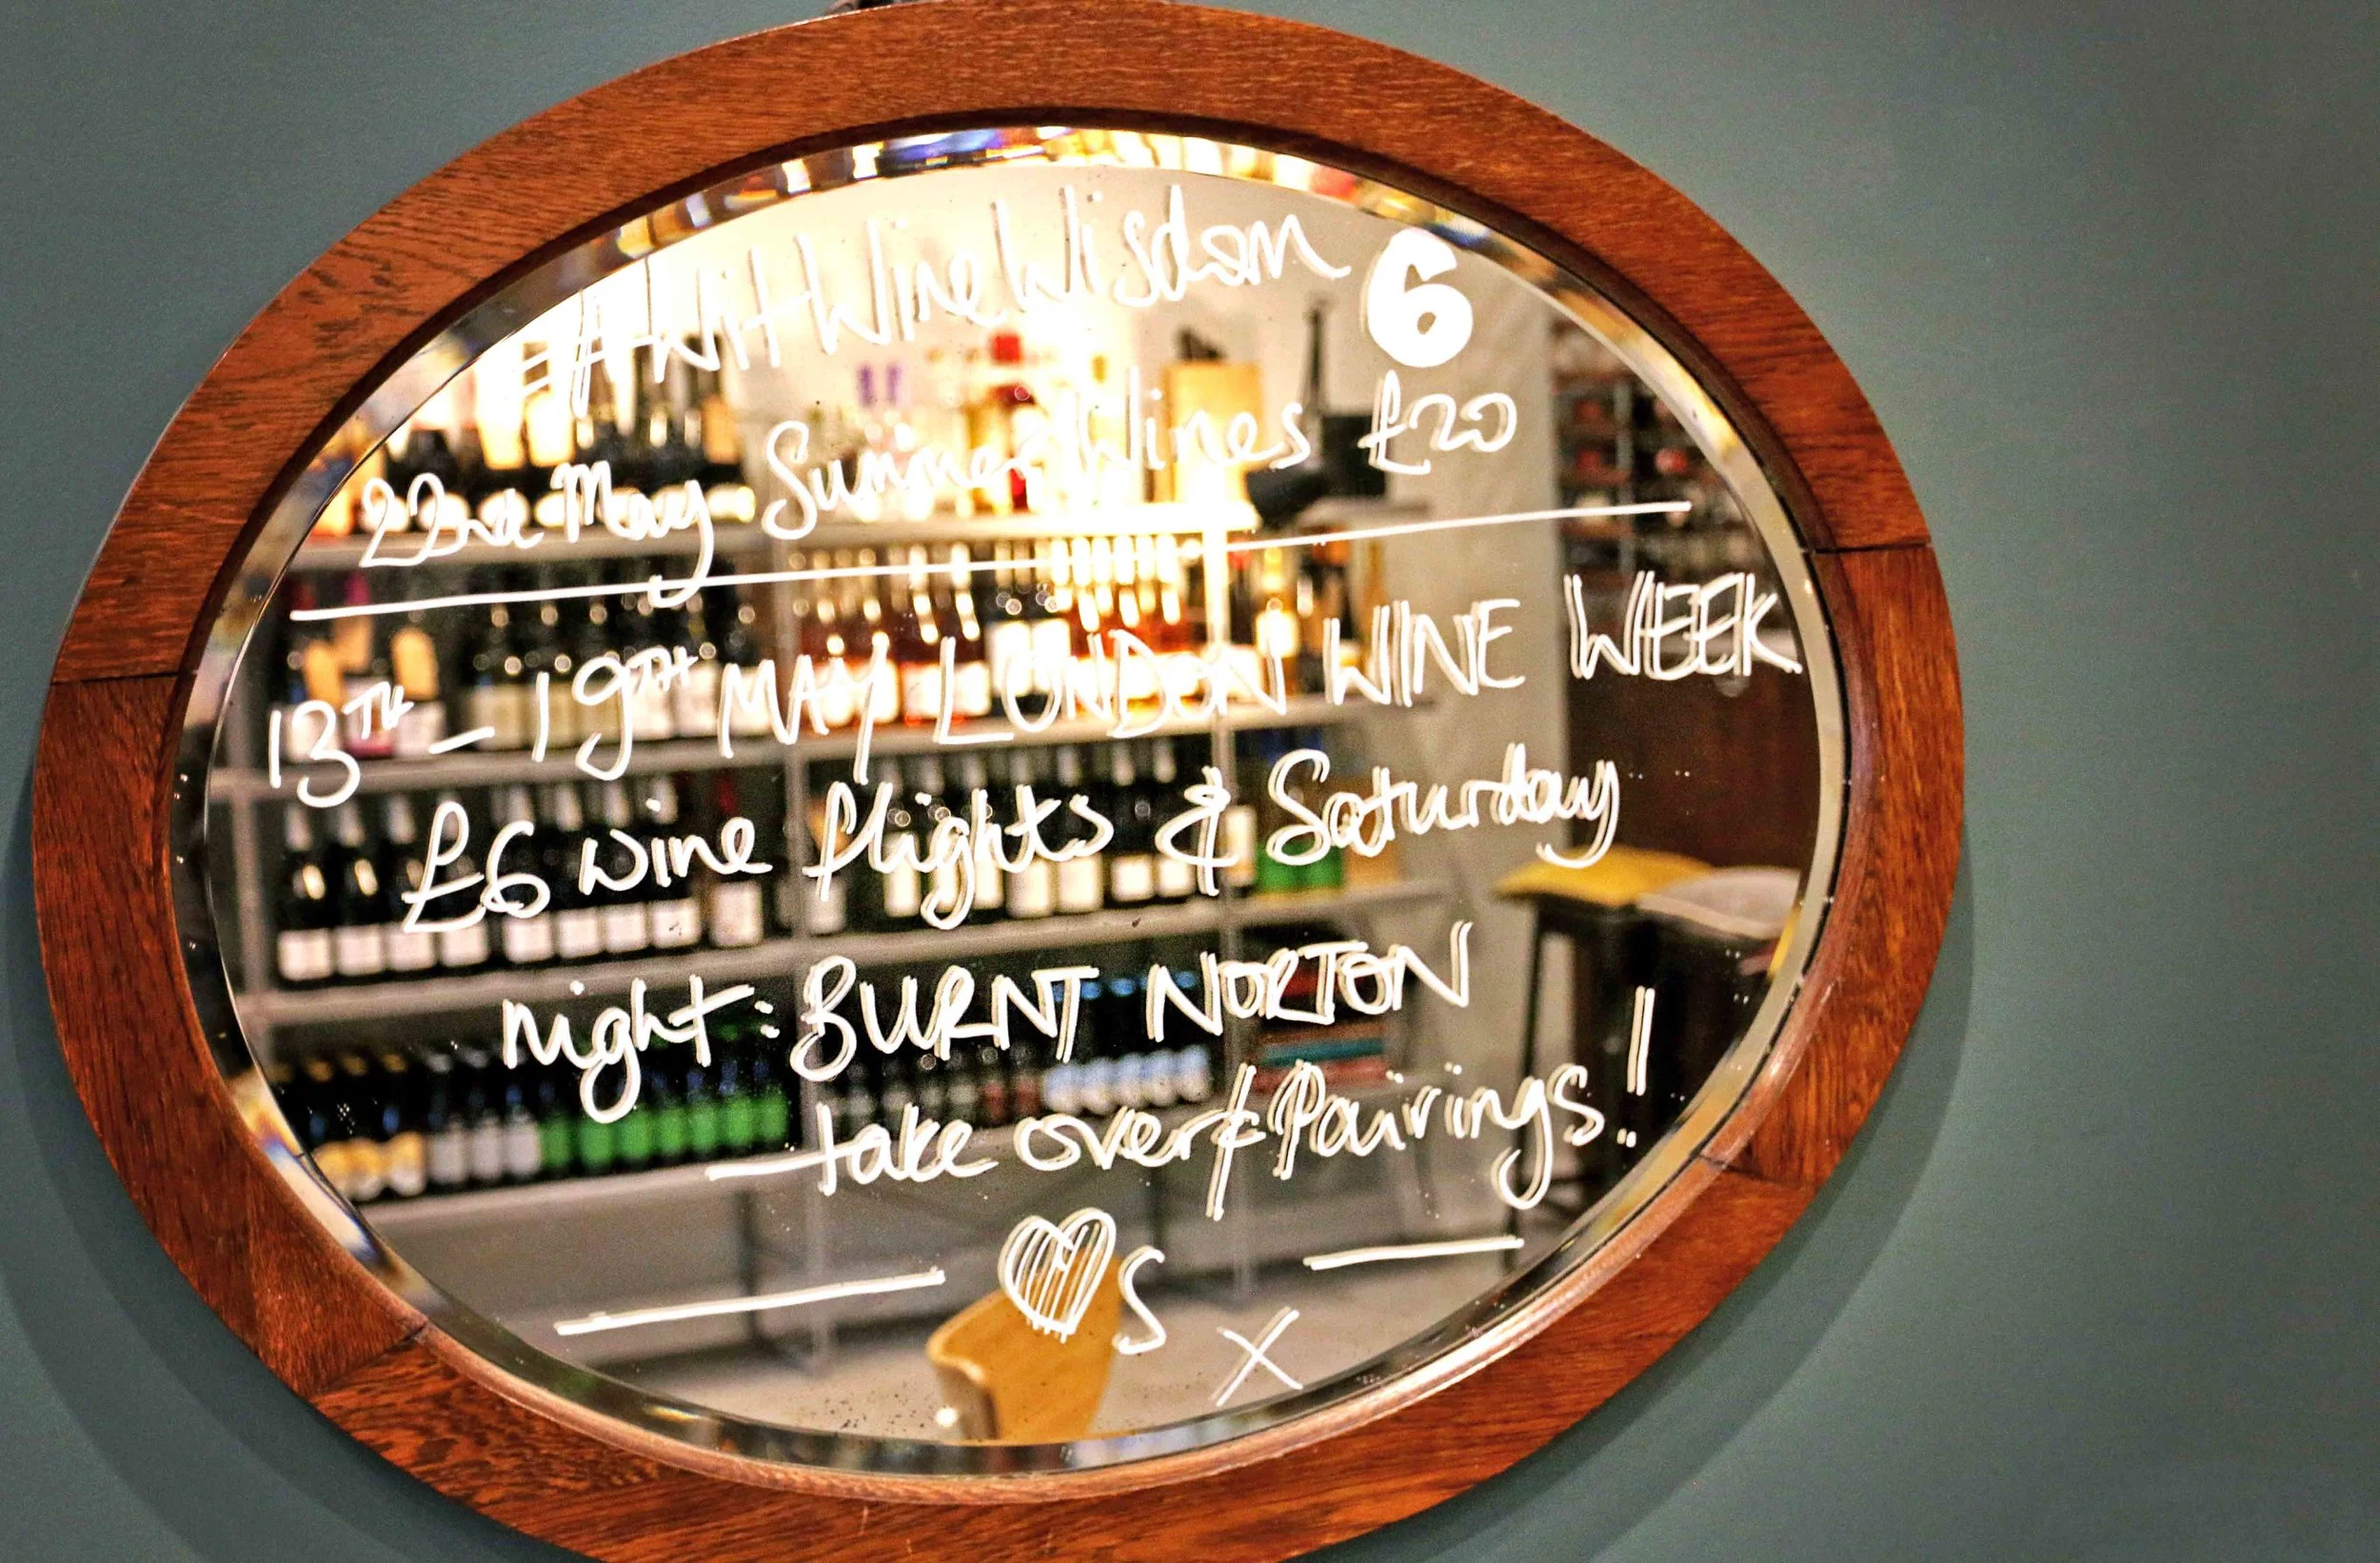 #WitWineWisdom 6
22nd May Summer Wines £20
13TH - 19TH MAY LONDON WINE WEEK
£6 wine flights & Saturday
night: BURNT NORTON
take over & Pairings!
♥S x